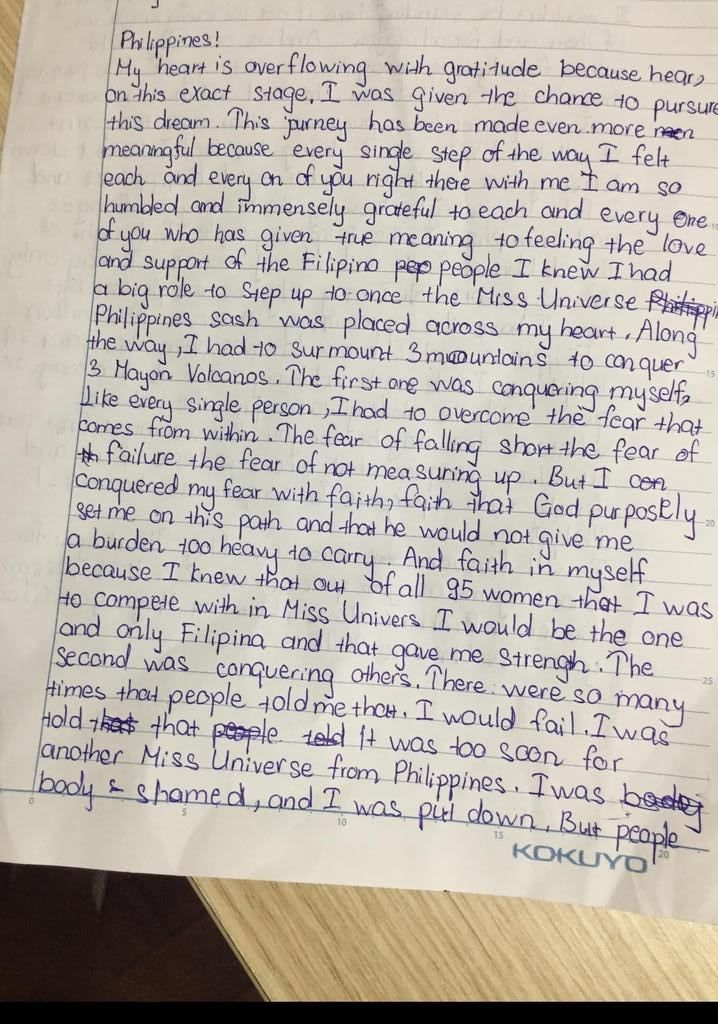 Philippines!
My heart is overflowing with gratitude because hear,
on this exact stage. I was given the chance to pursure
this dream. This journey has been made even more
meaningful because every single step of the way I felt
each and every on of you right there with me I am so
humbled and immensely grateful to each and every one
of you who has given true meaning to feeling the love
and support of the Filipino people I knew I had
a big role to step up to once the Miss Universe
Philippines sash was placed across my heart. Along
the way, I had to surmount 3 mountains to conquer
3 Mayon Volcanos. The first one was conquering myself,
Like every single person, I had to overcome the fear that
comes from within. The fear of falling short the fear of
failure the fear of not measuring up. But I
conquered my fear with faith, faith that God purposely
set me on this path and that he would not give me
a burden too heavy to carry. And faith in myself
because I knew that out of all 95 women that I was
to compete with in Miss Univers I would be the one
and only Filipina and that gave me strengh. The
second was conquering others. There were so many
times that people told me that. I would fail. I was
told that It was too soon for
another Miss Universe from Philippines. I was
body - shamed, and I was put down. But people
KOKUYO
0 5 10 15 20
15
20
25